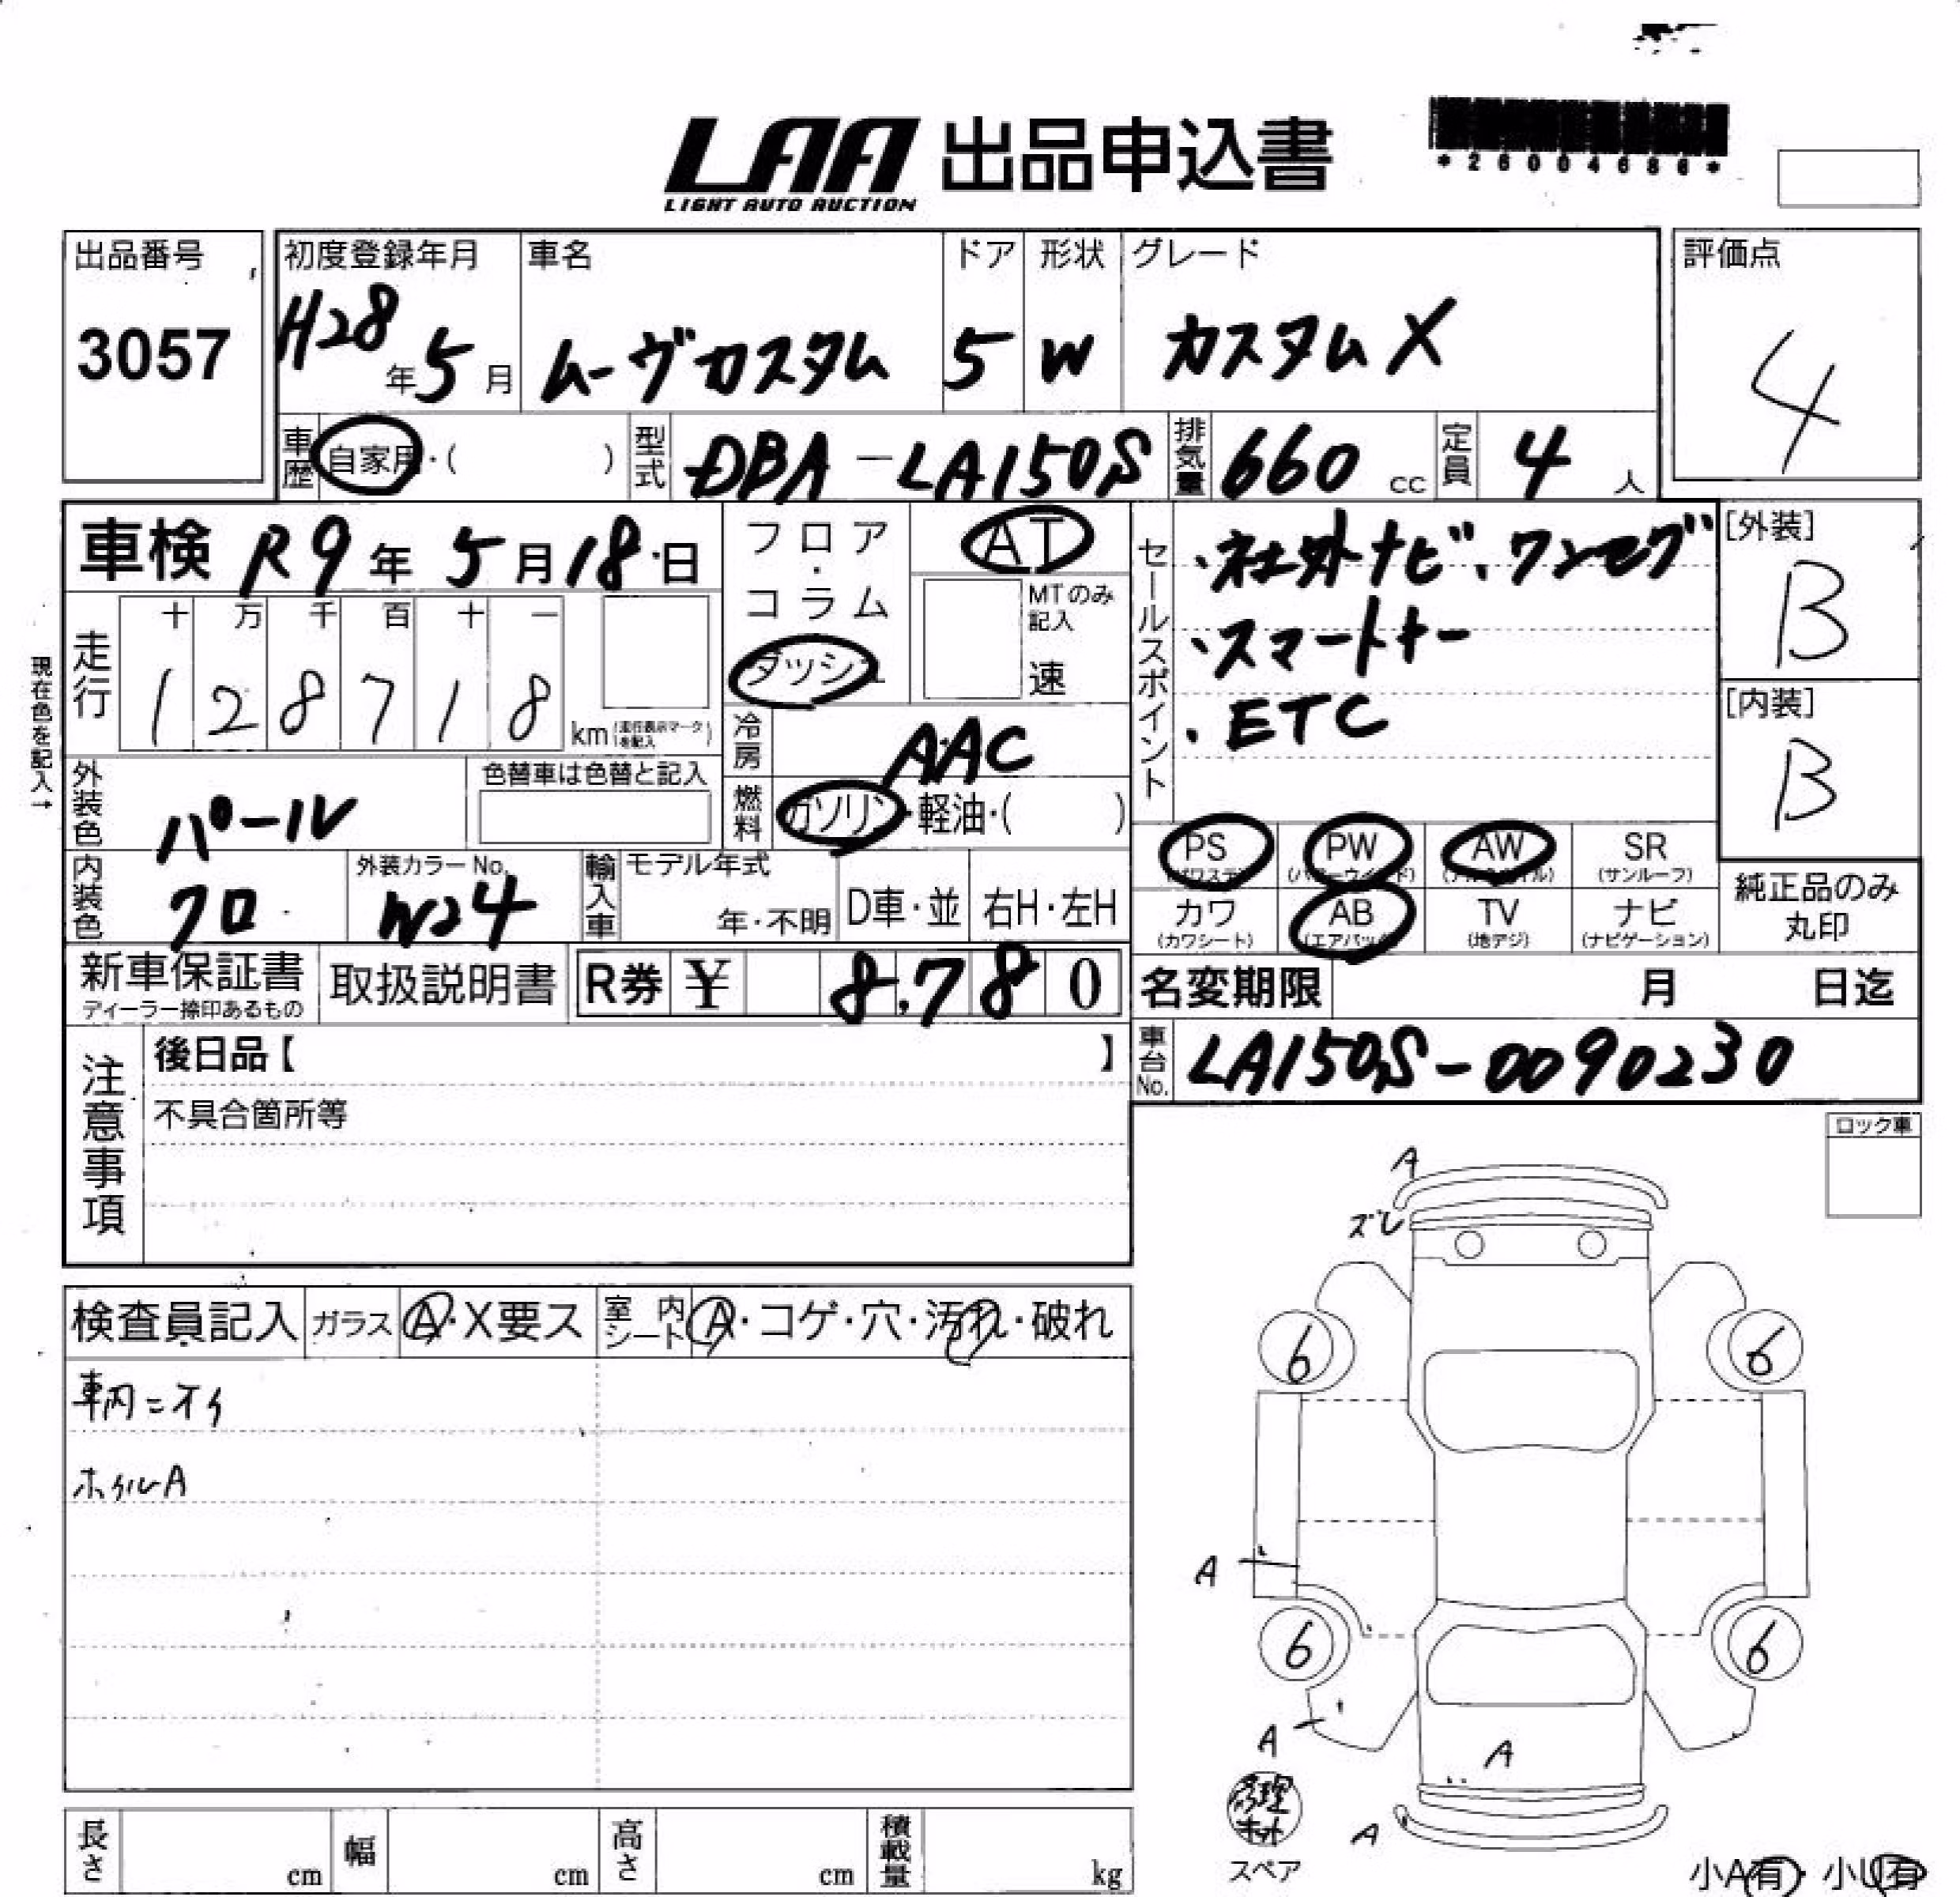 *26004686*
LAA 出品申込書
LIGHT AUTO AUCTION
出品番号 3057
初度登録年月 H28年5月
車名 ムーヴカスタム
ドア 5
形状 W
グレード カスタムX
評価点 4
車歴 自家用・( )
型式 DBA-LA150S
排気量 660 cc
定員 4 人
車検 R9年5月18日
フロア・コラム ダッシュ
AT
MTのみ記入 速
セールスポイント
・社外ナビ、ワンセグ
・スマートキー
・ETC
[外装] B
[内装] B
現在色を記入→
走行 十万千百十一
128718 km(走行表示マークを記入)
冷房 AAC
燃料 ガソリン・軽油・( )
外装色 パール
色替車は色替と記入
内装色 クロ
外装カラーNo. W24
輸入車 モデル年式 年・不明 D車・並 右H・左H
PS (パワステ) PW (パワーウインド) AW (アルミホイル) SR (サンルーフ)
カワ (カワシート) AB (エアバック) TV (地デジ) ナビ (ナビゲーション)
純正品のみ丸印
新車保証書 ディーラー捺印あるもの
取扱説明書
R券 ¥ 8,780
名変期限 月 日迄
車台No. LA150S-0090230
注意事項
後日品【 】
不具合箇所等
ロック車
検査員記入 ガラス A・X要ス 室内シート A・コゲ・穴・汚れ・破れ
車内ニオイ
ホイルA
A
ズレ
6 6
A
6 6
A
A
A
修理キット
スペア
長さ cm 幅 cm 高さ cm 積載量 kg
小A有・小U有